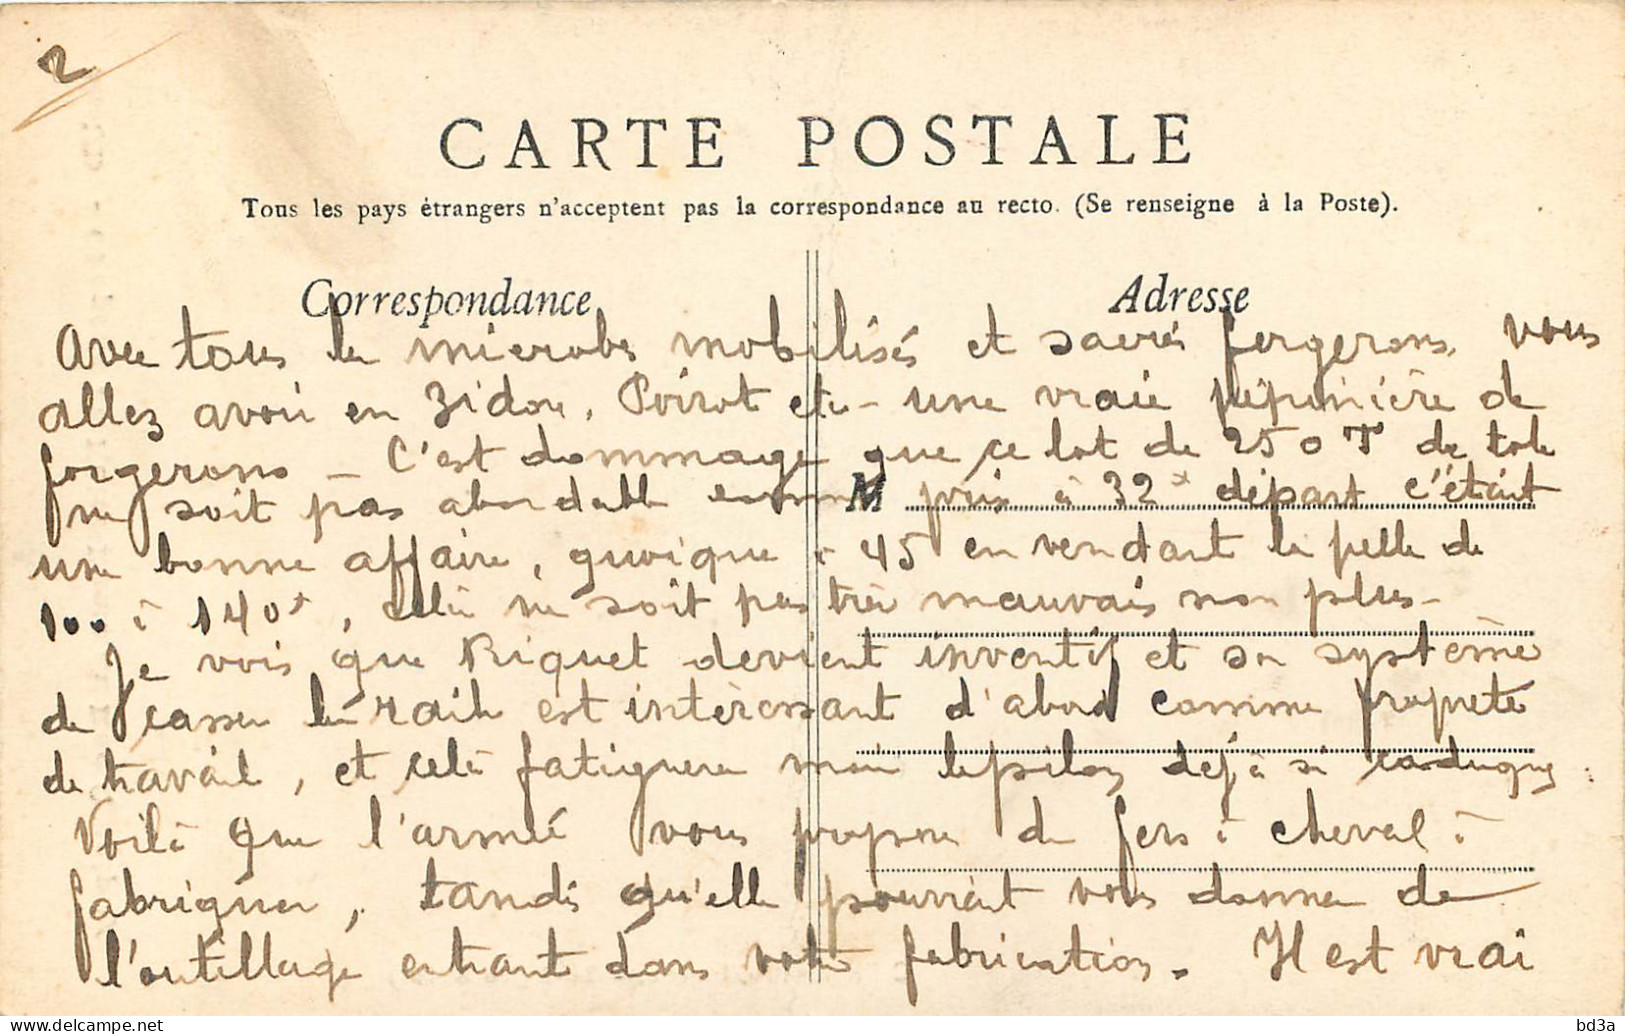 2
CARTE POSTALE
Tous les pays étrangers n'acceptent pas la correspondance au recto. (Se renseigne à la Poste).
Correspondance
Adresse
Avec tous les microbes mobilisés et sacrés forgerons, vous
allez avoir en Zidon, Poirot etc - une vraie pépinière de
forgerons - C'est dommage que ce lot de 250 T de tole
ne soit pas abordable comme prix à 32 départ c'était
M
une bonne affaire, quoique à 45 en vendant la pelle de
100 à 140, cela ne soit pas très mauvais non plus -
Je vois que Riquet devient inventif et son système
de casser les rails est intéressant d'abord comme propreté
de travail, et cela fatiguera moins déjà si
Voilà que l'armée vous propose de fers à cheval à
fabriquer, tandis qu'elle pourrait vous donner de
l'outillage entrant dans votre fabrication. Il est vrai
bd3a